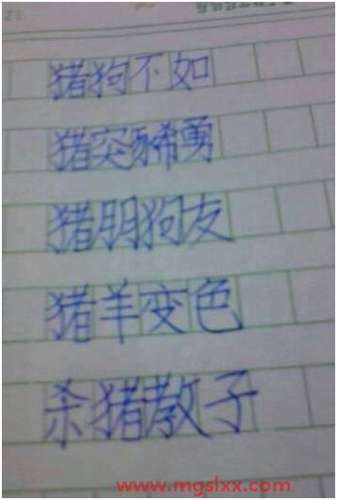 猪狗不如
猪突豨勇
猪朋狗友
猪羊变色
杀猪教子
www.mgslxx.com